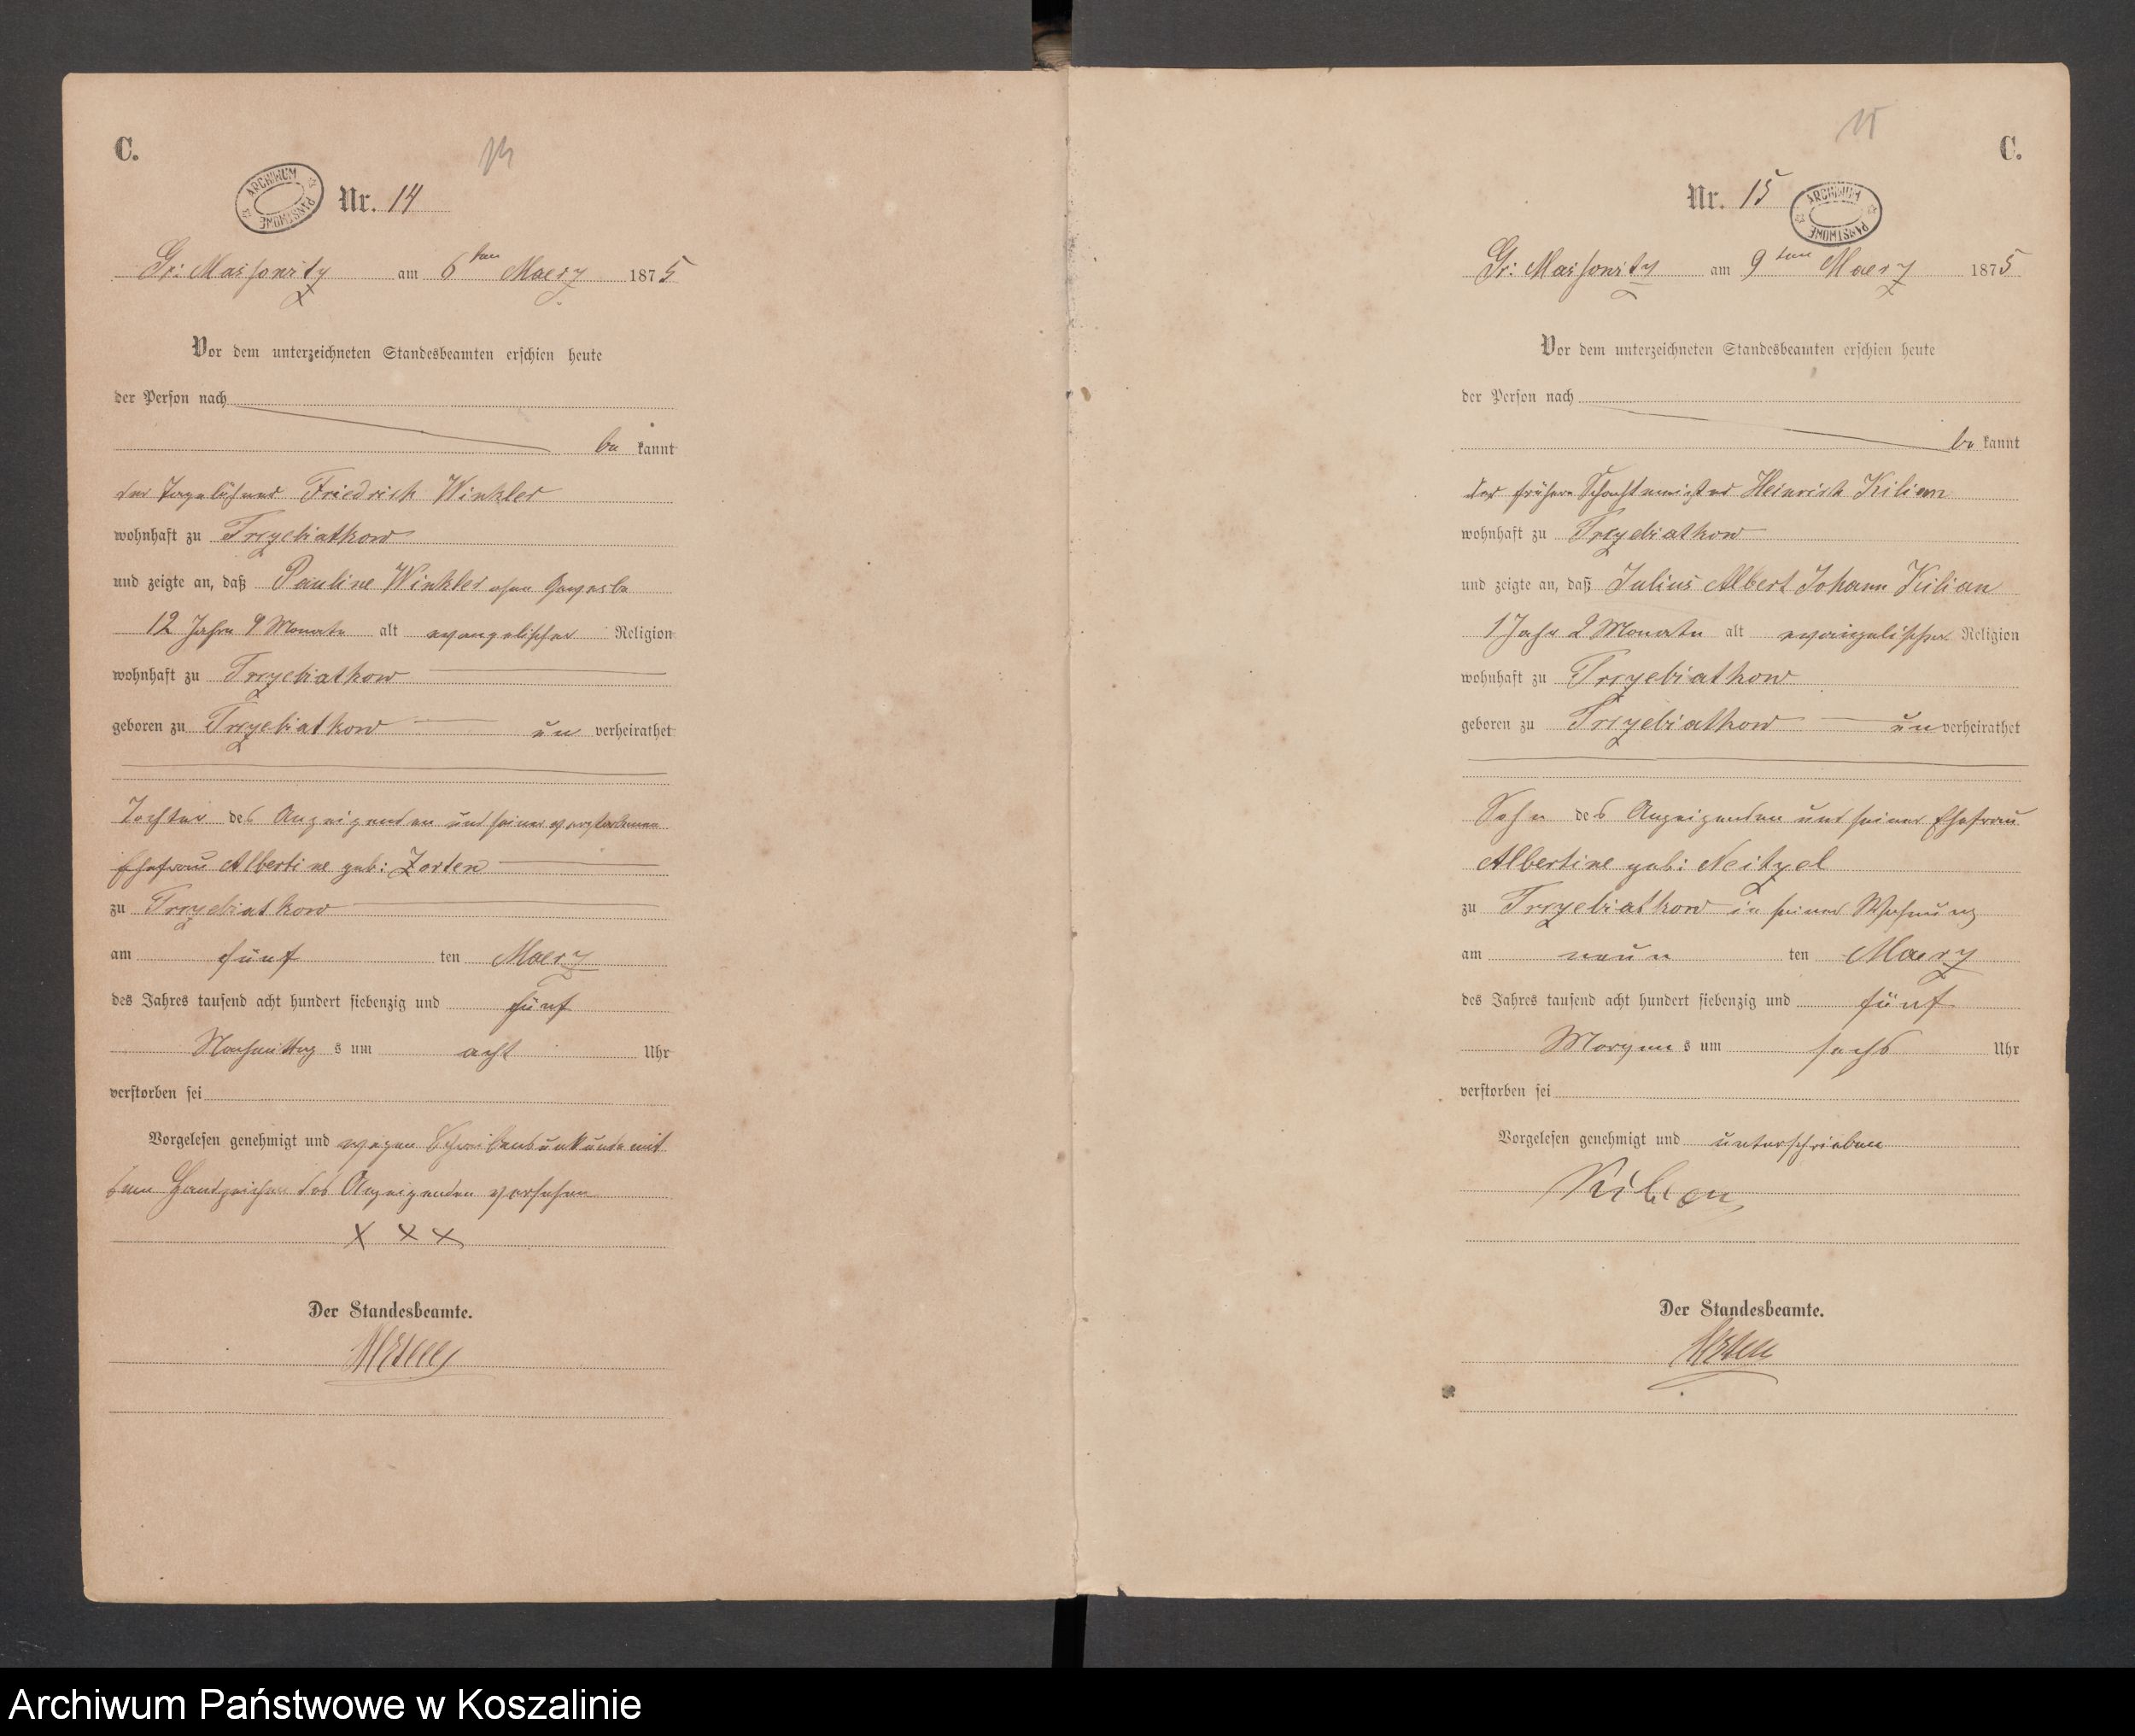 C.
Nr. 14
ARCHIWUM PAŃSTWOWE
Gr: Massowitz am 6ten Maerz 1875
Vor dem unterzeichneten Standesbeamten erschien heute
der Person nach
be kannt
der Tagelöhner Friedrich Winkler
wohnhaft zu Trzebiatkow
und zeigte an, daß Pauline Winkler ohne Gewerbe
12 Jahre 9 Monate alt evangelischer Religion
wohnhaft zu Trzebiatkow
geboren zu Trzebiatkow un verheirathet
Tochter des Anzeigenden und seiner verstorbenen
Ehefrau Albertine geb: Zorten
zu Trzebiatkow
am fünf ten Maerz
des Jahres tausend acht hundert siebenzig und fünf
Nachmittag s um acht Uhr
verstorben sei
Vorgelesen genehmigt und wegen Schreibensunkunde mit
dem Handzeichen des Anzeigenden versehen
X X X
Der Standesbeamte.
15
C.
Nr. 15
ARCHIWUM PAŃSTWOWE
Gr: Massowitz am 9ten Maerz 1875
Vor dem unterzeichneten Standesbeamten erschien heute
der Person nach
be kannt
der frühere Schachtmeister Heinrich Kilian
wohnhaft zu Trzebiatkow
und zeigte an, daß Julius Albert Johann Kilian
1 Jahr 2 Monate alt evangelischer Religion
wohnhaft zu Trzebiatkow
geboren zu Trzebiatkow un verheirathet
Sohn des Anzeigenden und seiner Ehefrau
Albertine geb: Neitzel
zu Trzebiatkow in seiner Wohnung
am neun ten Maerz
des Jahres tausend acht hundert siebenzig und fünf
Morgen s um sechs Uhr
verstorben sei
Vorgelesen genehmigt und unterschrieben
Kilian
Der Standesbeamte.
Archiwum Państwowe w Koszalinie